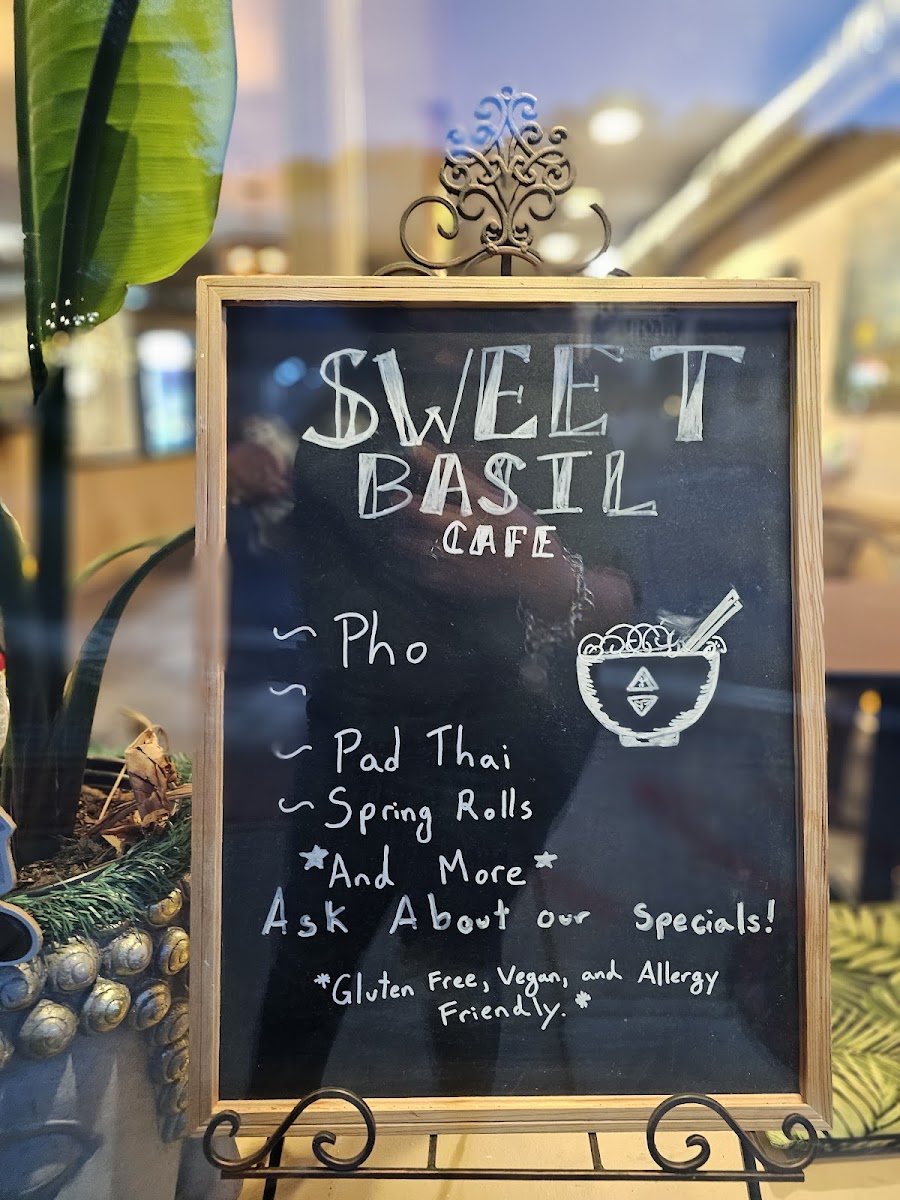 SWEET
BASIL
CAFE
~ Pho
~
~ Pad Thai
~ Spring Rolls
*And More*
Ask About our Specials!
*Gluten Free, Vegan, and Allergy
Friendly.*